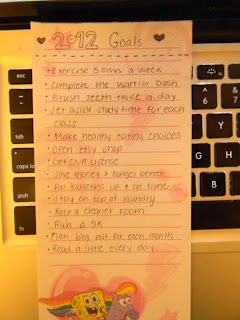 2012 Goals
• Exercise 5 days a week
• Complete the Warrior Dash
• Brush teeth twice a day
• Set aside study time for each
class
• Make healthy eating choices
• Open etsy shop
• Get CNA License
• Save money & budget better
• Put bulletins up on time
• Stay on top of laundry
• Keep a cleaner room
• Run a 5K
• Plan blog for each month
• Read a little every day
esc
tab
caps lo
shift
fn
6
7
Y
G
H
B